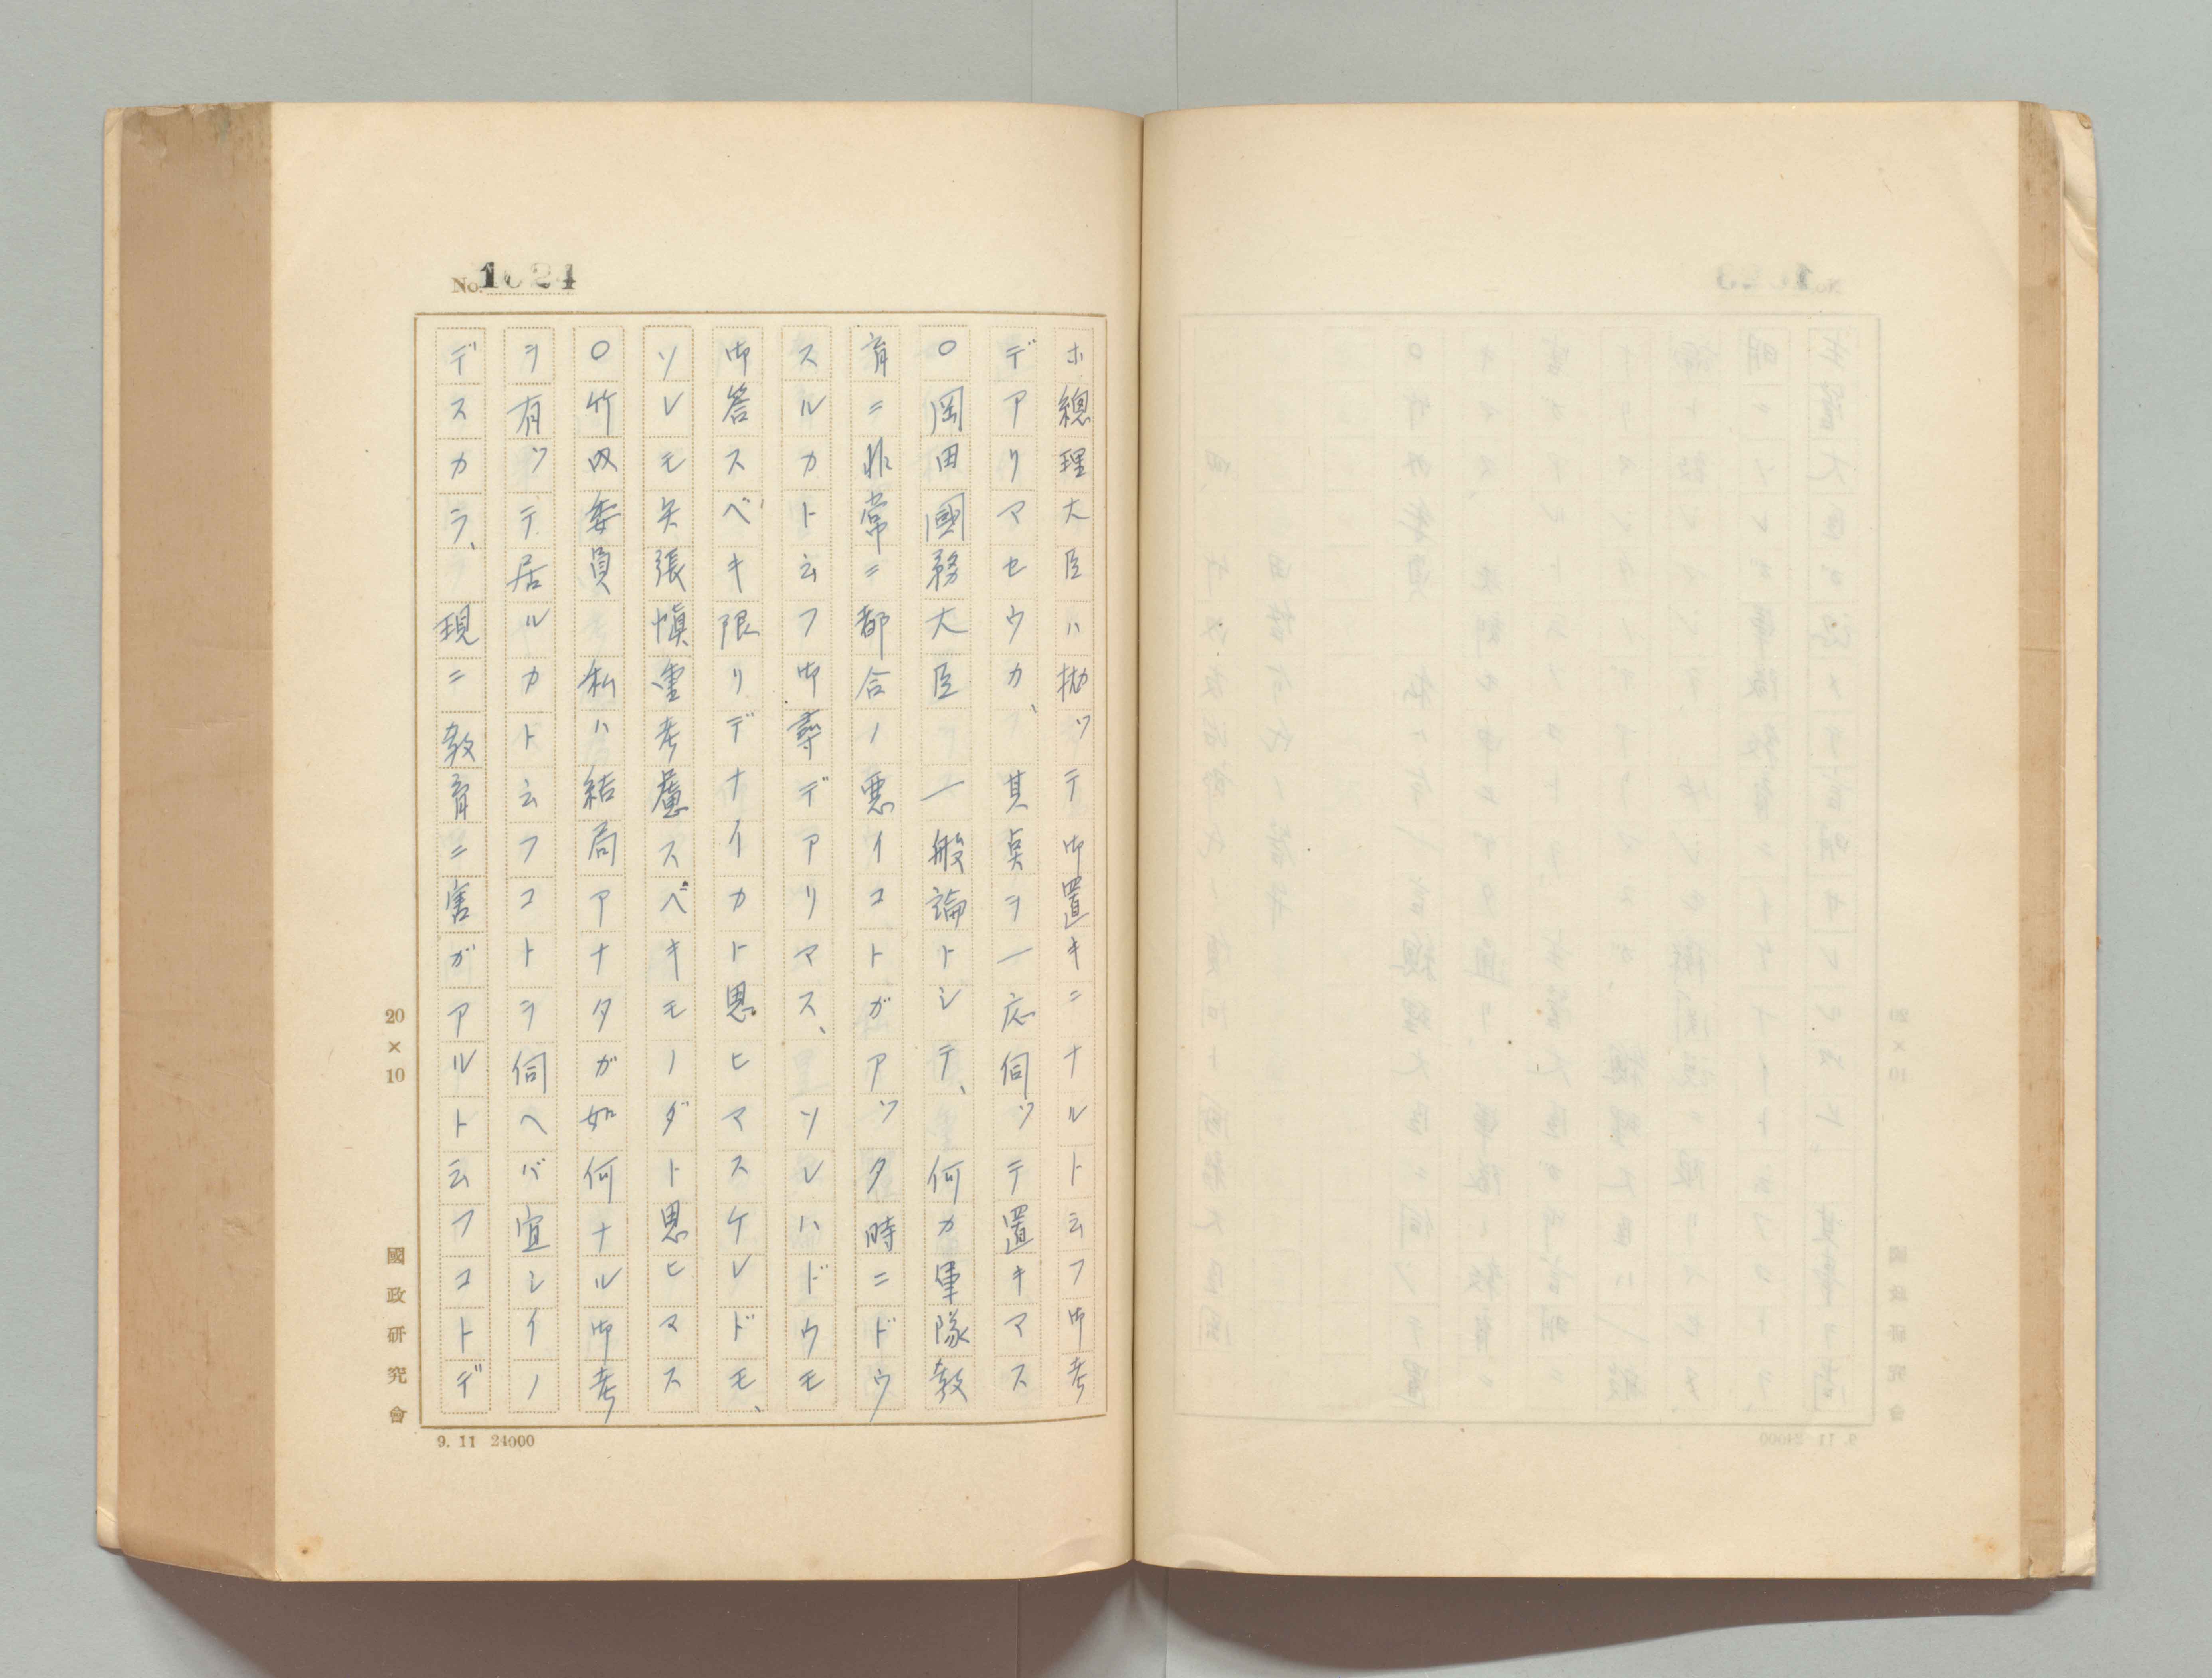 No. 1024
ホ總理大臣ハ拋ッテ御置キニナルト云フ御考
デアリマセウカ、其点ヲ一応伺ッテ置キマス
○岡田國務大臣　一般論トシテ、何カ軍隊教
育ニ非常ニ都合ノ悪イコトガアッタ時ニドウ
スルカト云フ御尋デアリマス、ソレハドウモ
御答スベキ限リデナイカト思ヒマスケレドモ、
ソレモ矢張愼重考慮スベキモノダト思ヒマス
○竹内委員　私ハ結局アナタガ如何ナル御考
ヲ有ッテ居ルカト云フコトヲ伺ヘバ宜シイノ
デスカラ、現ニ教育ニ害ガアルト云フコトデ
20×10
國政研究會
9. 11　24000